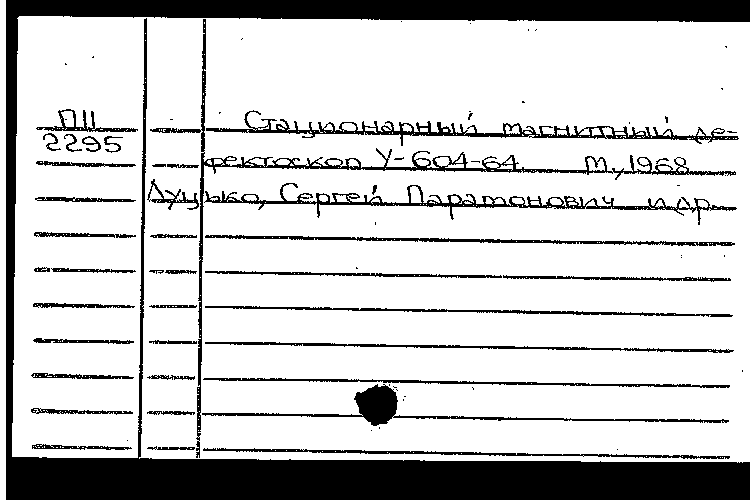 ПII
2295
Стационарный магнитный де-
фектоскоп У-604-64. М., 1968
Луцько, Сергей Паратонович и др.